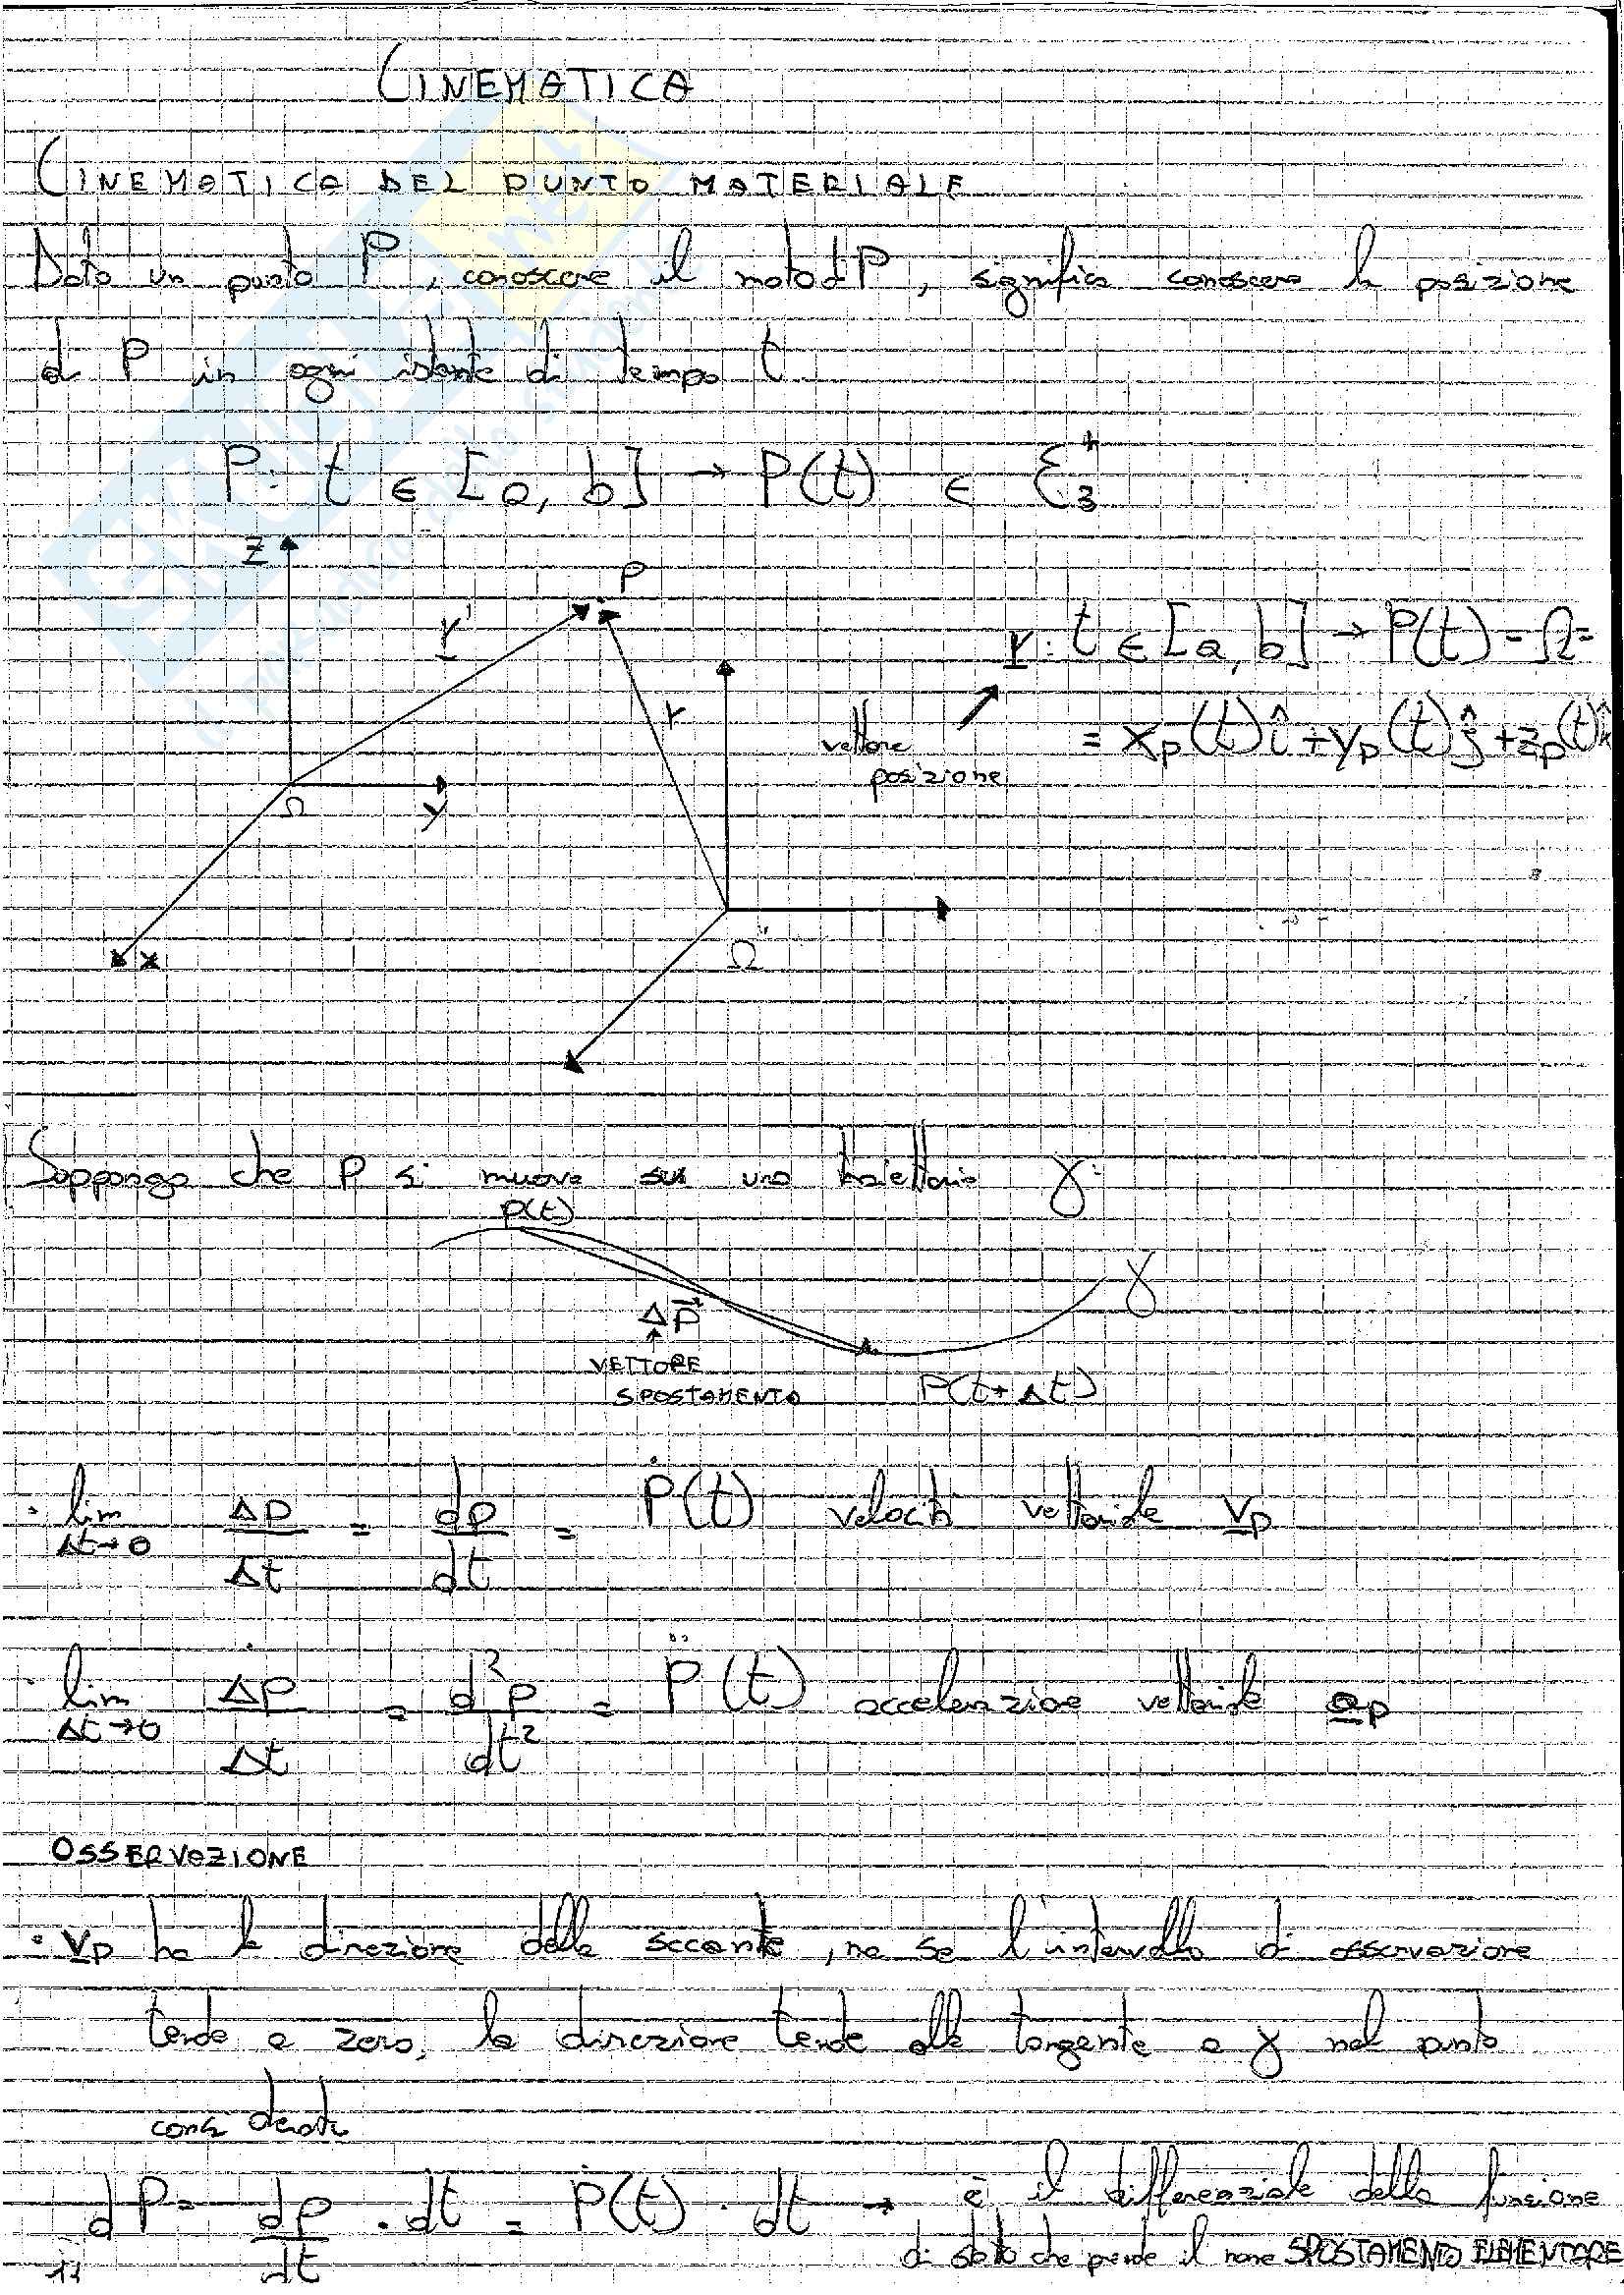 CINEMATICA
CINEMATICA DEL PUNTO MATERIALE
Dato un punto P, conoscere il moto di P, significa conoscere la posizione
di P in ogni istante di tempo t.
P: t ∈ [a, b] → P(t) ∈ ℰ₃
z
P
r'
r: t ∈ [a, b] → P(t) - Ω =
r
vettore
posizione
= xp(t)î + yp(t)ĵ + zp(t)k̂
Ω
y
x
Ω'
Suppongo che P si muova su una traiettoria γ:
P(t)
γ
ΔP
VETTORE
SPOSTAMENTO
P(t+Δt)
· lim Δt→0 Δp/Δt = dp/dt = Ṗ(t) velocità vettoriale vp
· lim Δt→0 Δṗ/Δt = d²p/dt² = P̈(t) accelerazione vettoriale ap
OSSERVAZIONE
· vp ha la direzione della secante, ma se l'intervallo di osservazione
tende a zero, la direzione tende alla tangente a γ nel punto
dP = dp/dt · dt = Ṗ(t) · dt → è il differenziale della funzione
di stato che prende il nome SPOSTAMENTO ELEMENTARE